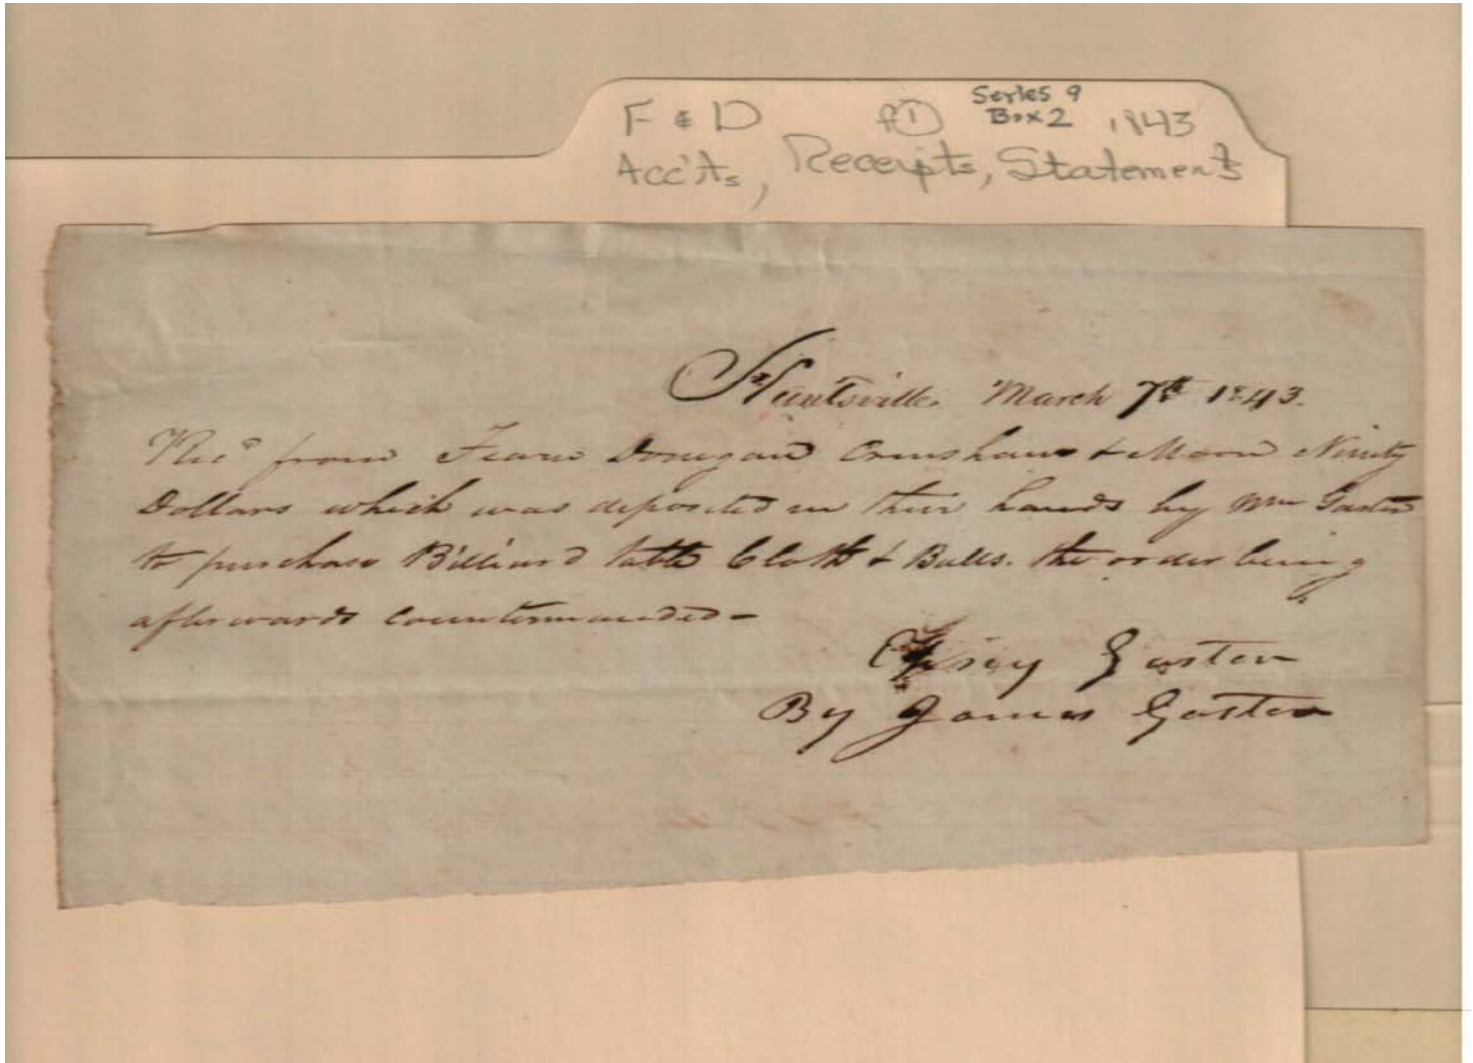 F & D f① Series 9 1843
Box 2
Acc'ts, Receipts, Statements
Huntsville March 7th 1843.
Recd from Fearn Donegan Crenshaw & Moon Ninety
Dollars which was deposited in their hands by Wm Gaston
to purchase Billiard table Cloth & Balls. the order being
afterwards Countermanded-
Gaston
By James Gaston